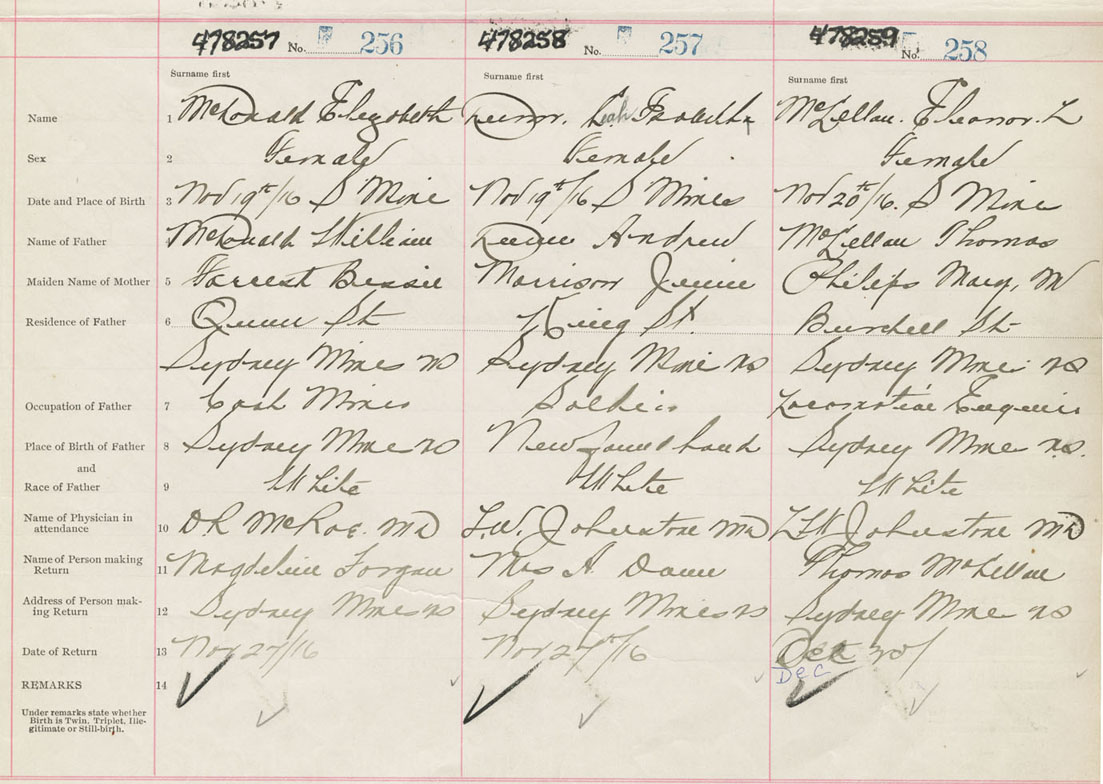 478257 No. 256 478258 No. 257 478259 No. 258
Surname first Surname first Surname first
Name 1 McDonald Elizabeth Leah Isabella McLellan. Eleanor. L
Sex 2 Female Female Female
Date and Place of Birth 3 Nov 19th/16 S Mine Nov 19th/16 S Mines Nov 20th/16. S Mine
Name of Father McDonald William Andrew McLellan Thomas
Maiden Name of Mother 5 Farrest Bessie Morrison Jennie Philips Mary, M
Residence of Father 6 Queen St King St. Burchell St
Sydney Mines NS Sydney Mine NS Sydney Mine NS
Occupation of Father 7 Coal Miner Soldier Locomotive Engineer
Place of Birth of Father 8 Sydney Mine NS Newfoundland Sydney Mine N.S.
and
Race of Father 9 White White White
Name of Physician in
attendance 10 DR McRae. MD L.W. Johnstone MD LW Johnstone MD
Name of Person making
Return 11 Magdeline Forgan Mrs A. Thomas McLellan
Address of Person mak-
ing Return 12 Sydney Mines NS Sydney Mines NS Sydney Mine NS
Date of Return 13 Nov 27/16 Nov 27th/16 Dec 20/
Dec
REMARKS 14
Under remarks state whether
Birth is Twin, Triplet, Ille-
gitimate or Still-birth.